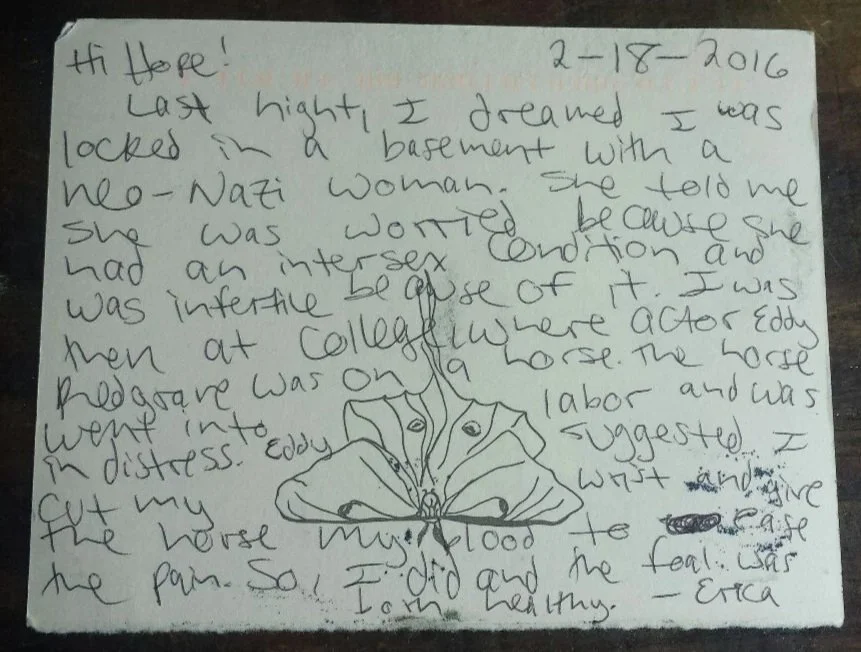 Hi Hope! 2-18-2016
Last night, I dreamed I was
locked in a basement with a
neo-Nazi woman. She told me
she was worried because she
had an intersex condition and
was infertile because of it. I was
then at college, where actor Eddy
Redgrave was on a horse. The horse
went into labor and was
in distress. Eddy suggested I
cut my wrist and give
the horse my blood to ease
the pain. So, I did and the foal was
born healthy. - Erica